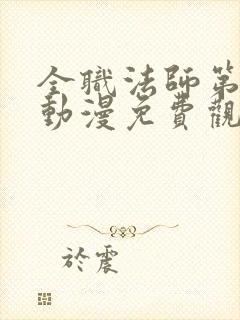 全職法師第
動漫免費觀
於震